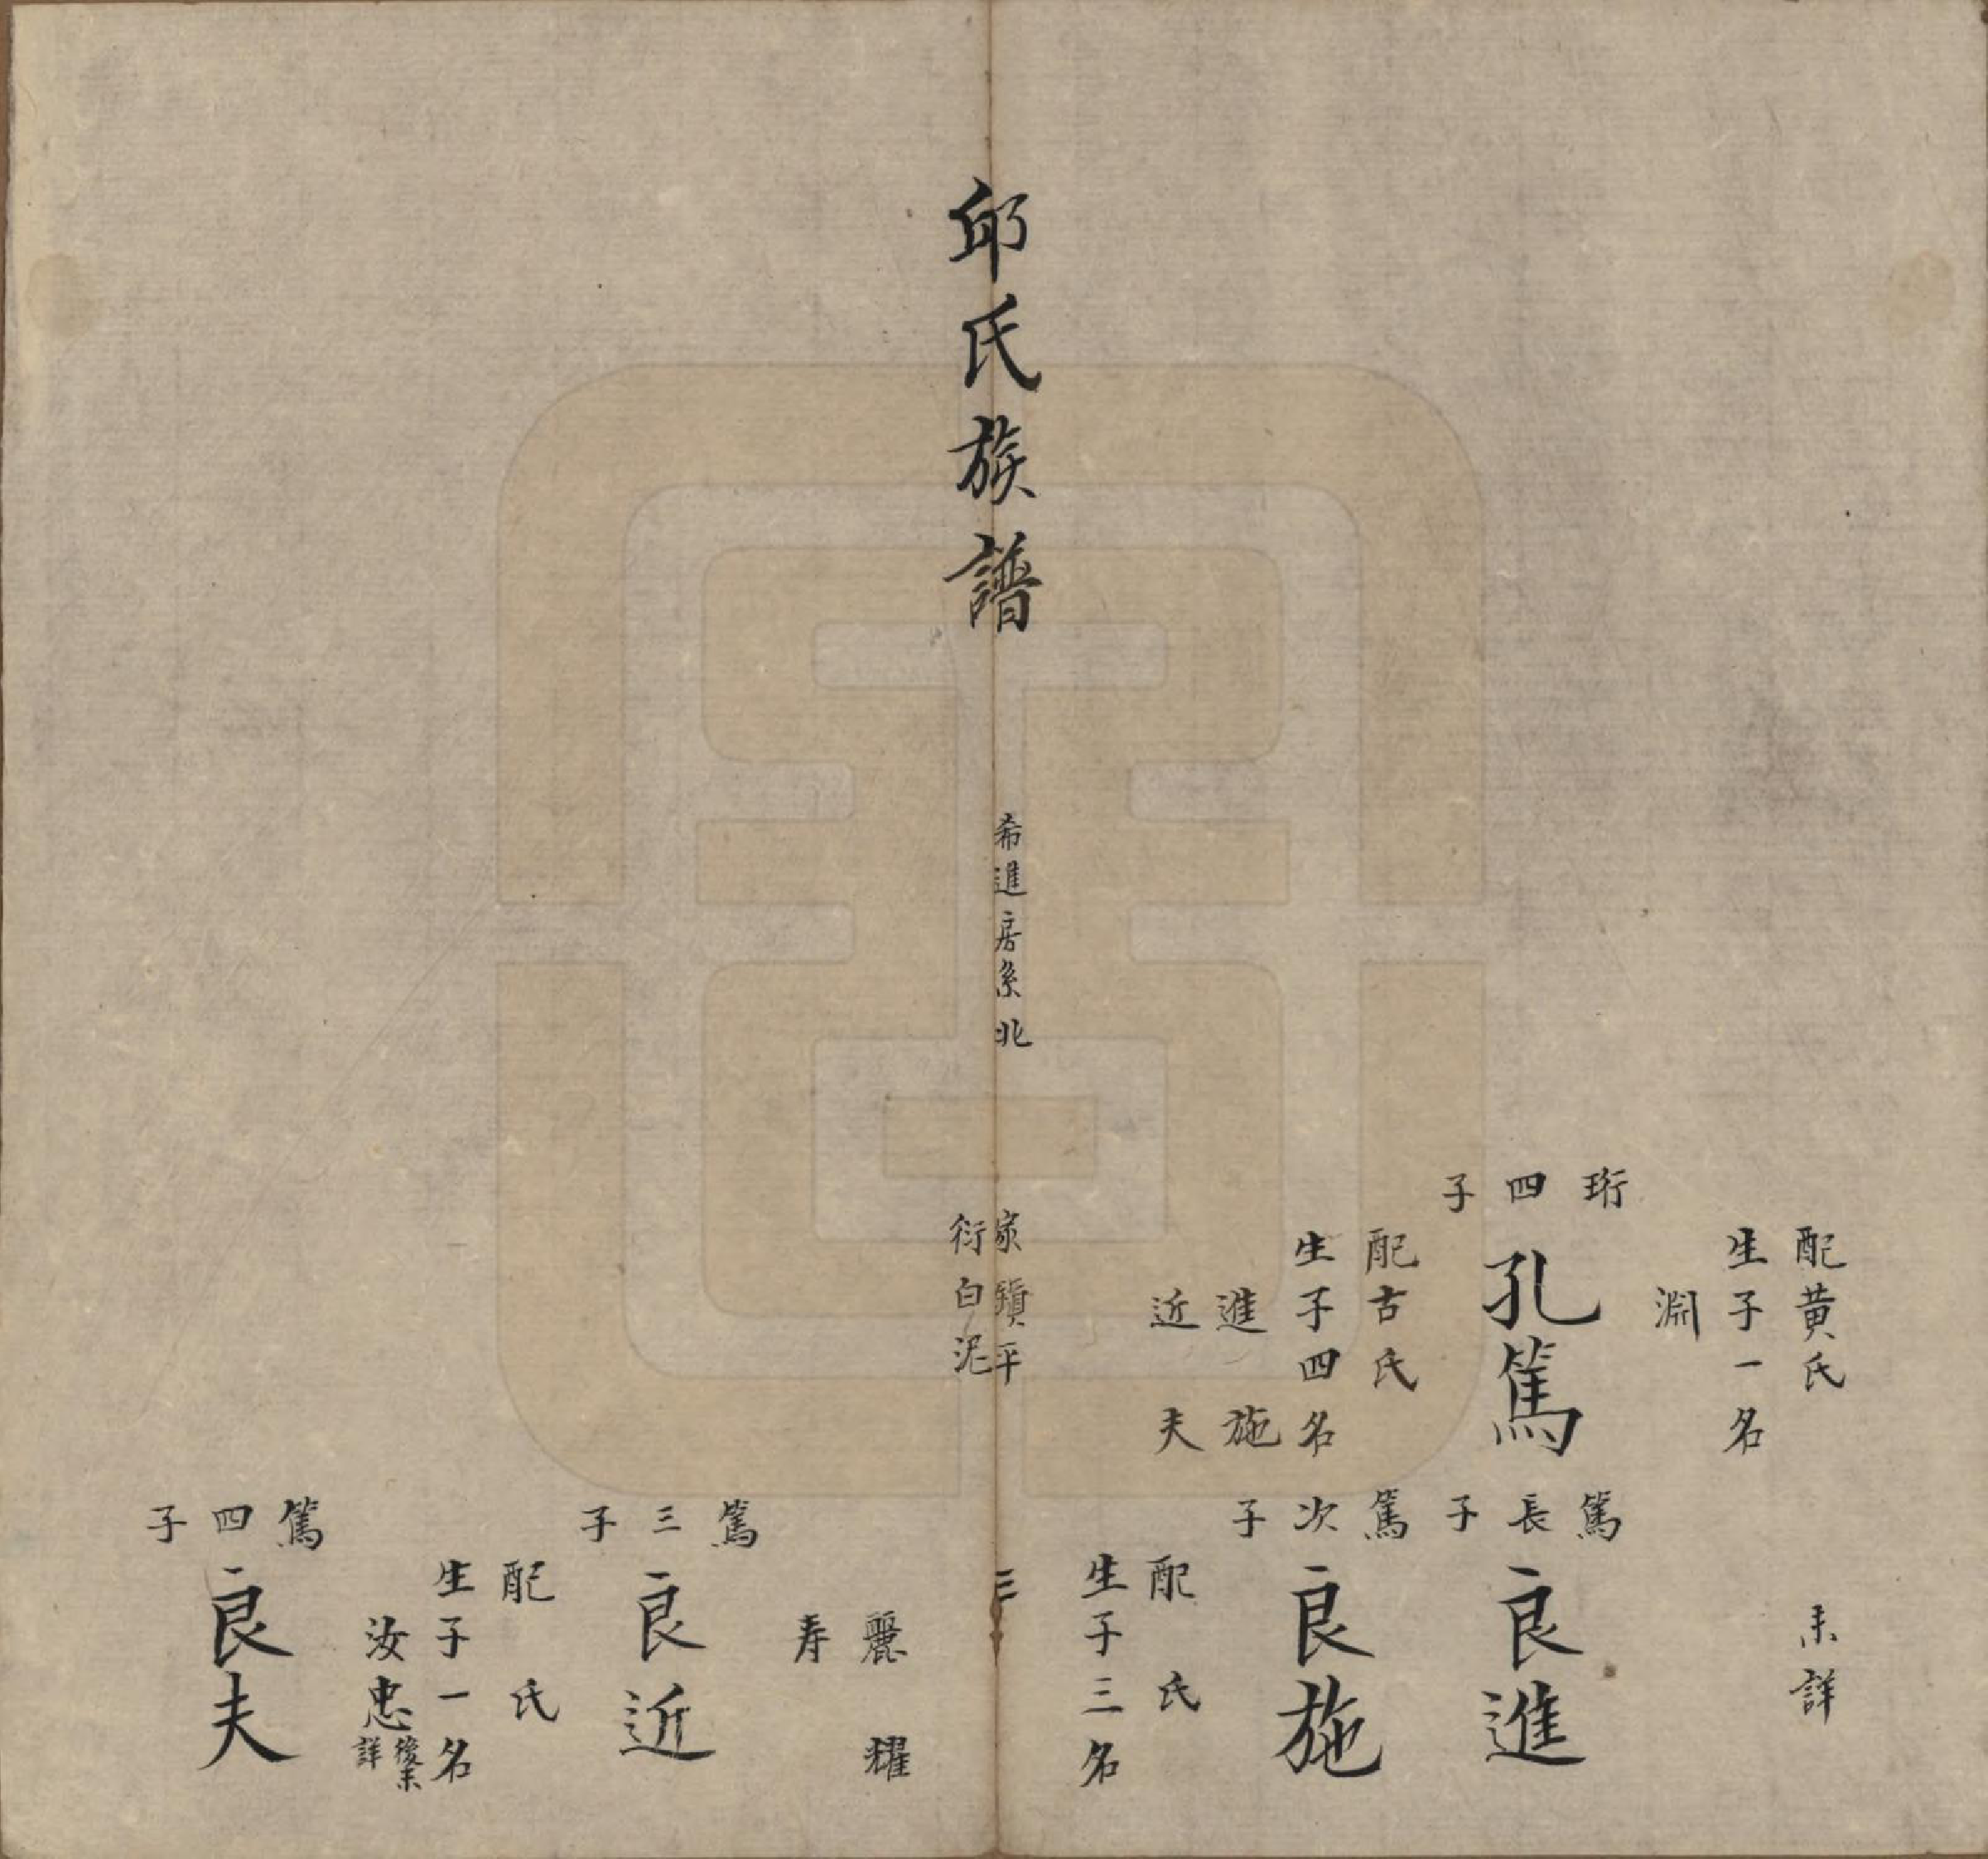 配黃氏
生子一名
淵
未詳
珩四子
孔篤
配古氏
生子四名
進 施
近 夫
篤長子
良進
篤次子
良施
配 氏
生子三名
邱氏族譜
希進房系 北
家 平
衍白泥
三
麗 耀
寿
篤三子
良近
配 氏
生子一名
汝忠後未詳
篤四子
良夫